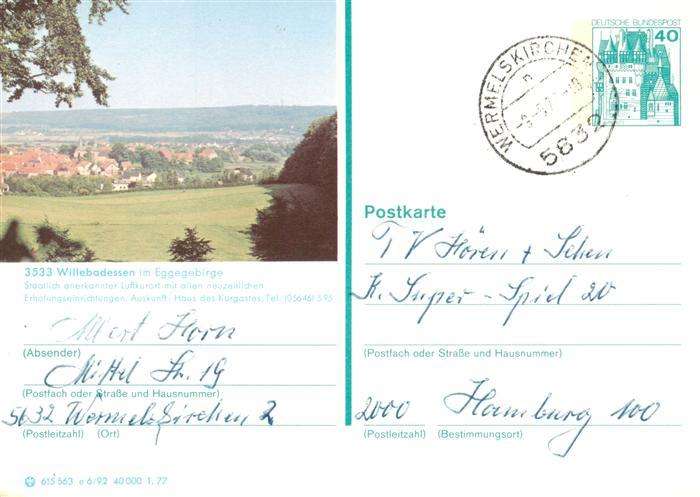 DEUTSCHE BUNDESPOST
40
WERMELSKIRCHEN
5632
3533 Willebadessen im Eggegebirge
Staatlich anerkannter Luftkurort mit allen neuzeitlichen
Erholungseinrichtungen. Auskunft: Haus des Kurgastes, Tel. (05646) 595
Albert Horn
(Absender)
Mittel Str. 19
(Postfach oder Straße und Hausnummer)
5632 Wermelskirchen 2
(Postleitzahl) (Ort)
615 563 e 6/92 40 000 1. 77
Postkarte
TV Hören + Sehen
K. Super - Spiel 20
(Postfach oder Straße und Hausnummer)
2000 Hamburg 100
(Postleitzahl) (Bestimmungsort)